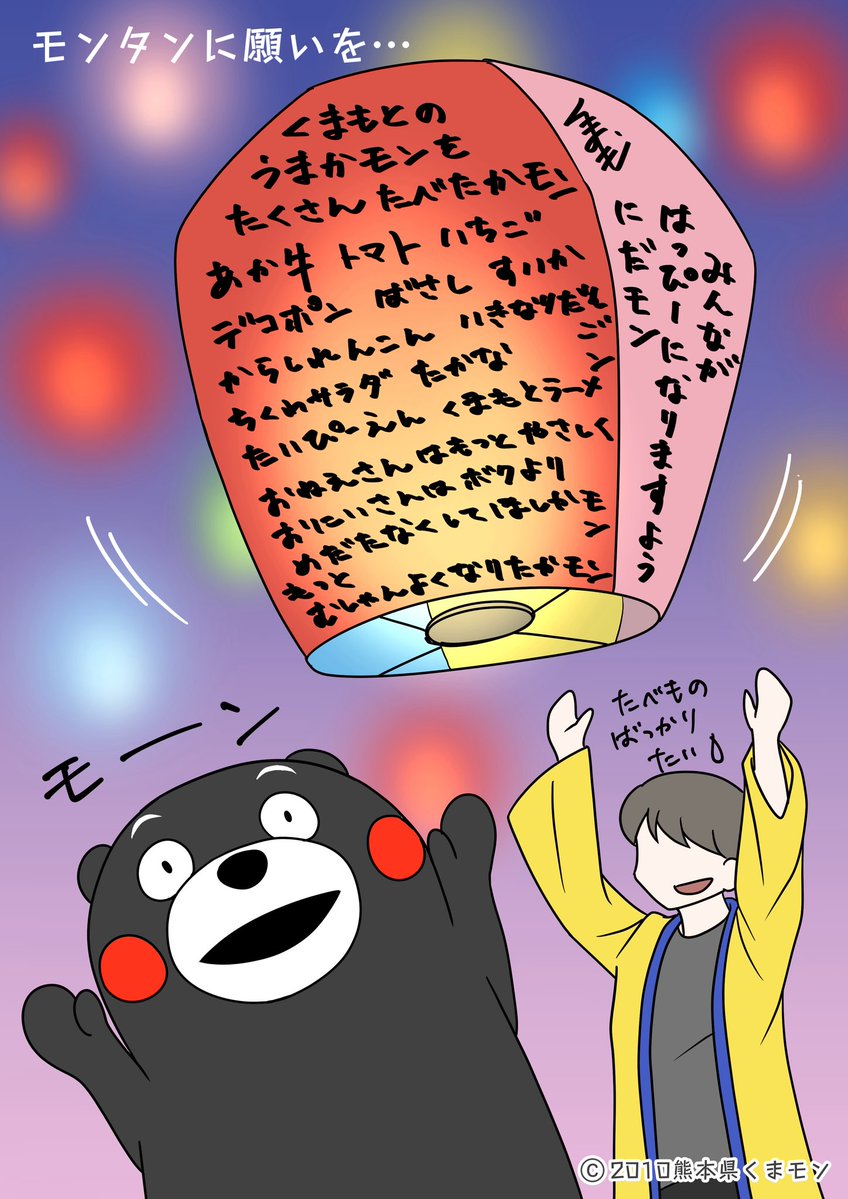 モンタンに願いを…
くまもとの
うまかモンを
たくさん たべたかモン
あか牛 トマト いちご
デコポン ばさし すいか
からしれんこん いきなりだんゴン
ちくわサラダ たかな
たいぴーえん くまもとラーメン
おねえさんはもっとやさしく
おにいさんはボクより
めだたなくしてほしかモン
もっと
むしゃんよくなりたかモン
くまモン
みんなが
はっぴーになりますよう
にだモン
モーン
たべもの
ばっかり
たい
©2010熊本県くまモン